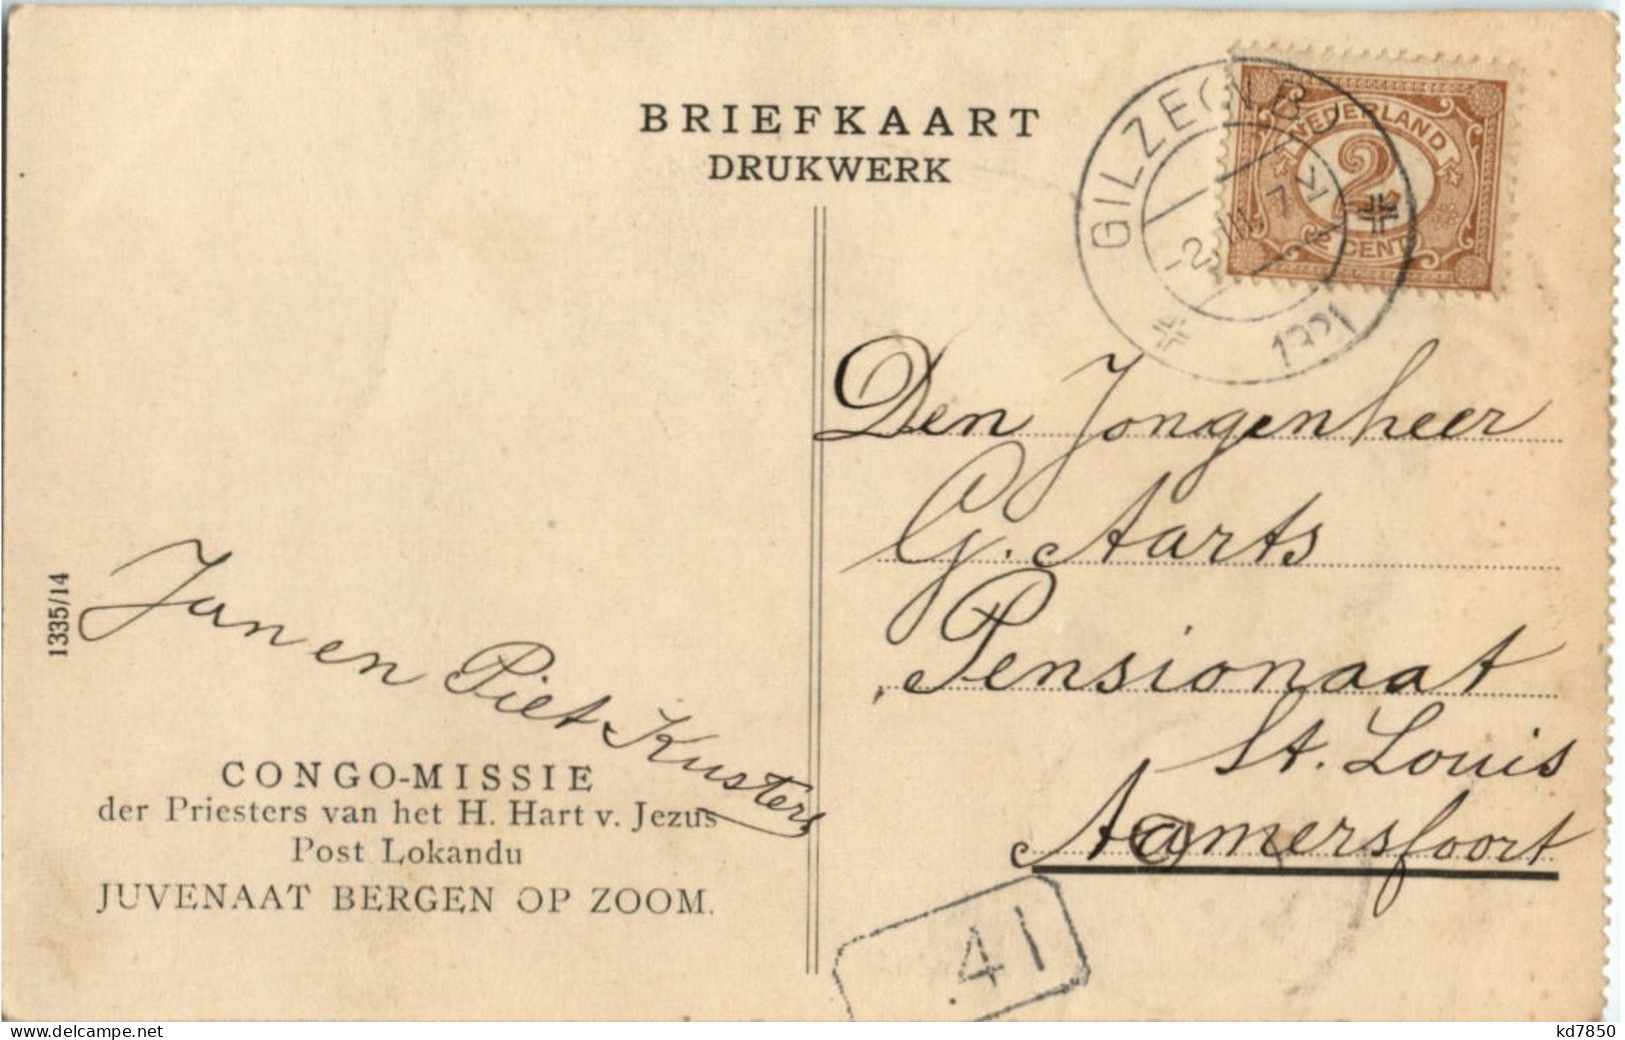 BRIEFKAART
DRUKWERK
GILZE(N.B.)
-2.III. 7 K
1921
NEDERLAND
2
2 CENT
Den Jongenheer
G. Aarts
Pensionaat
St. Louis
Amersfoort
1335/14
Jan en Piet Kusters
CONGO-MISSIE
der Priesters van het H. Hart v. Jezus
Post Lokandu
JUVENAAT BERGEN OP ZOOM.
41
www.delcampe.net
kd7850